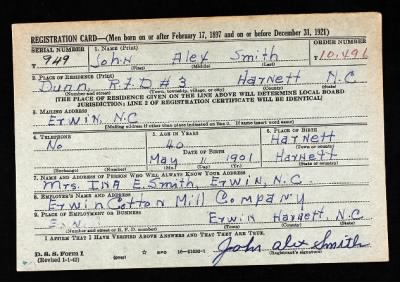 REGISTRATION CARD—(Men born on or after February 17, 1897 and on or before December 31, 1921)
SERIAL NUMBER 1. NAME (Print) ORDER NUMBER
T 949 John Alex Smith T 10,496
(First) (Middle) (Last)
2. PLACE OF RESIDENCE (Print)
Dunn, R.F.D #3 Harnett N.C
(Number and street) (Town, township, village, or city) (County) (State)
[THE PLACE OF RESIDENCE GIVEN ON THE LINE ABOVE WILL DETERMINE LOCAL BOARD
JURISDICTION; LINE 2 OF REGISTRATION CERTIFICATE WILL BE IDENTICAL]
3. MAILING ADDRESS
Erwin, N.C
[Mailing address if other than place indicated on line 2. If same insert word same]
4. TELEPHONE 5. AGE IN YEARS 6. PLACE OF BIRTH
No 40 Harnett
DATE OF BIRTH (Town or county)
May 11 1901 Harnett
(Exchange) (Number) (Mo.) (Day) (Yr.) (State or country)
7. NAME AND ADDRESS OF PERSON WHO WILL ALWAYS KNOW YOUR ADDRESS
Mrs. Ina E. Smith, Erwin, N.C.
8. EMPLOYER'S NAME AND ADDRESS
Erwin Cotton Mill Company
9. PLACE OF EMPLOYMENT OR BUSINESS
Erwin Harnett, N.C
(Number and street or R. F. D. number) (Town) (County) (State)
I AFFIRM THAT I HAVE VERIFIED ABOVE ANSWERS AND THAT THEY ARE TRUE.
D. S. S. Form 1
(Revised 1-1-42) (over) GPO John Alex Smith
(Registrant's signature)